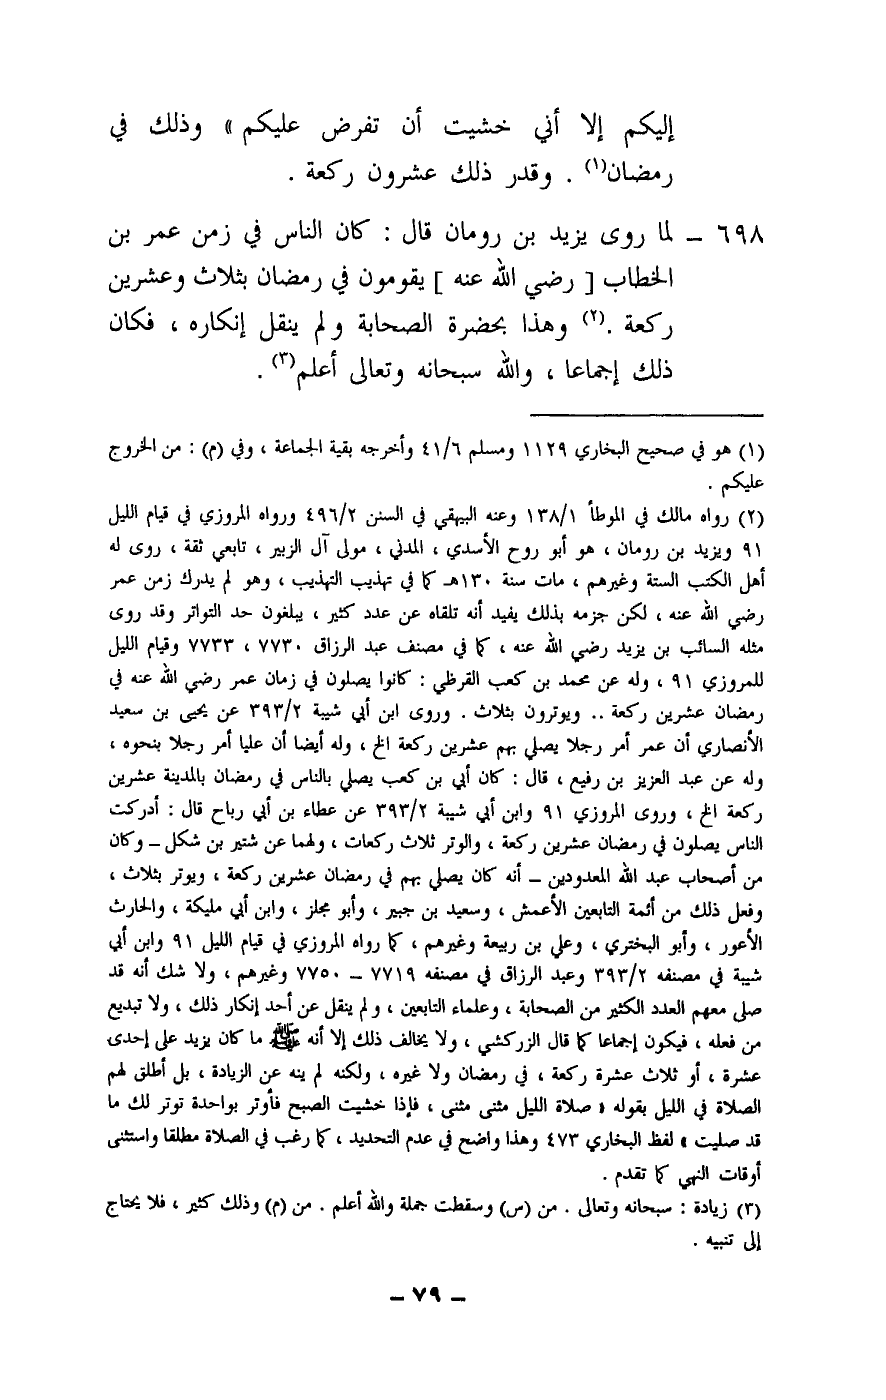 إليكم إلا أني خشيت أن تفرض عليكم » وذلك في
رمضان(١) . وقدر ذلك عشرون ركعة .
٦٩٨ – لما روى يزيد بن رومان قال : كان الناس في زمن عمر بن
الخطاب [ رضي الله عنه ] يقومون في رمضان بثلاث وعشرين
ركعة .(٢) وهذا بحضرة الصحابة ولم ينقل إنكاره ، فكان
ذلك إجماعا ، والله سبحانه وتعالى أعلم(٣) .
(١) هو في صحيح البخاري ١١٢٩ ومسلم ٤١/٦ وأخرجه بقية الجماعة ، وفي (م) : من الخروج
عليكم .
(٢) رواه مالك في الموطأ ١٣٨/١ وعنه البيهقي في السنن ٤٩٦/٢ ورواه المروزي في قيام الليل
٩١ ويزيد بن رومان ، هو أبو روح الأسدي ، المدني ، مولى آل الزبير ، تابعي ثقة ، روى له
أهل الكتب الستة وغيرهم ، مات سنة ١٣٠هـ كما في تهذيب التهذيب ، وهو لم يدرك زمن عمر
رضي الله عنه ، لكن جزمه بذلك يفيد أنه تلقاه عن عدد كثير ، يبلغون حد التواتر وقد روى
مثله السائب بن يزيد رضي الله عنه ، كما في مصنف عبد الرزاق ٧٧٣٠ ، ٧٧٣٣ وقيام الليل
للمروزي ٩١ ، وله عن محمد بن كعب القرظي : كانوا يصلون في زمان عمر رضي الله عنه في
رمضان عشرين ركعة .. ويوترون بثلاث . وروى ابن أبي شيبة ٣٩٣/٢ عن يحيى بن سعيد
الأنصاري أن عمر أمر رجلا يصلي بهم عشرين ركعة الخ ، وله أيضا أن عليا أمر رجلا بنحوه ،
وله عن عبد العزيز بن رفيع ، قال : كان أبي بن كعب يصلي بالناس في رمضان بالمدينة عشرين
ركعة الخ ، وروى المروزي ٩١ وابن أبي شيبة ٣٩٣/٢ عن عطاء بن أبي رباح قال : أدركت
الناس يصلون في رمضان عشرين ركعة ، والوتر ثلاث ركعات ، ولهما عن شتير بن شكل – وكان
من أصحاب عبد الله المعدودين – أنه كان يصلي بهم في رمضان عشرين ركعة ، ويوتر بثلاث ،
وفعل ذلك من أئمة التابعين الأعمش ، وسعيد بن جبير ، وأبو مجلز ، وابن أبي مليكة ، والحارث
الأعور ، وأبو البختري ، وعلي بن ربيعة وغيرهم ، كما رواه المروزي في قيام الليل ٩١ وابن أبي
شيبة في مصنفه ٣٩٣/٢ وعبد الرزاق في مصنفه ٧٧١٩ – ٧٧٥٠ وغيرهم ، ولا شك أنه قد
صلى معهم العدد الكثير من الصحابة ، وعلماء التابعين ، ولم ينقل عن أحد إنكار ذلك ، ولا تبديع
من فعله ، فيكون إجماعا كما قال الزركشي ، ولا يخالف ذلك إلا أنه ﷺ ما كان يزيد على إحدى
عشرة ، أو ثلاث عشرة ركعة ، في رمضان ولا غيره ، ولكنه لم ينه عن الزيادة ، بل أطلق لهم
الصلاة في الليل بقوله « صلاة الليل مثنى مثنى ، فإذا خشيت الصبح فأوتر بواحدة توتر لك ما
قد صليت » لفظ البخاري ٤٧٣ وهذا واضح في عدم التحديد ، كما رغب في الصلاة مطلقا واستثنى
أوقات النهي كما تقدم .
(٣) زيادة : سبحانه وتعالى . من (س) وسقطت جملة والله أعلم . من (م) وذلك كثير ، فلا يحتاج
إلى تنبيه .
– ٧٩ –